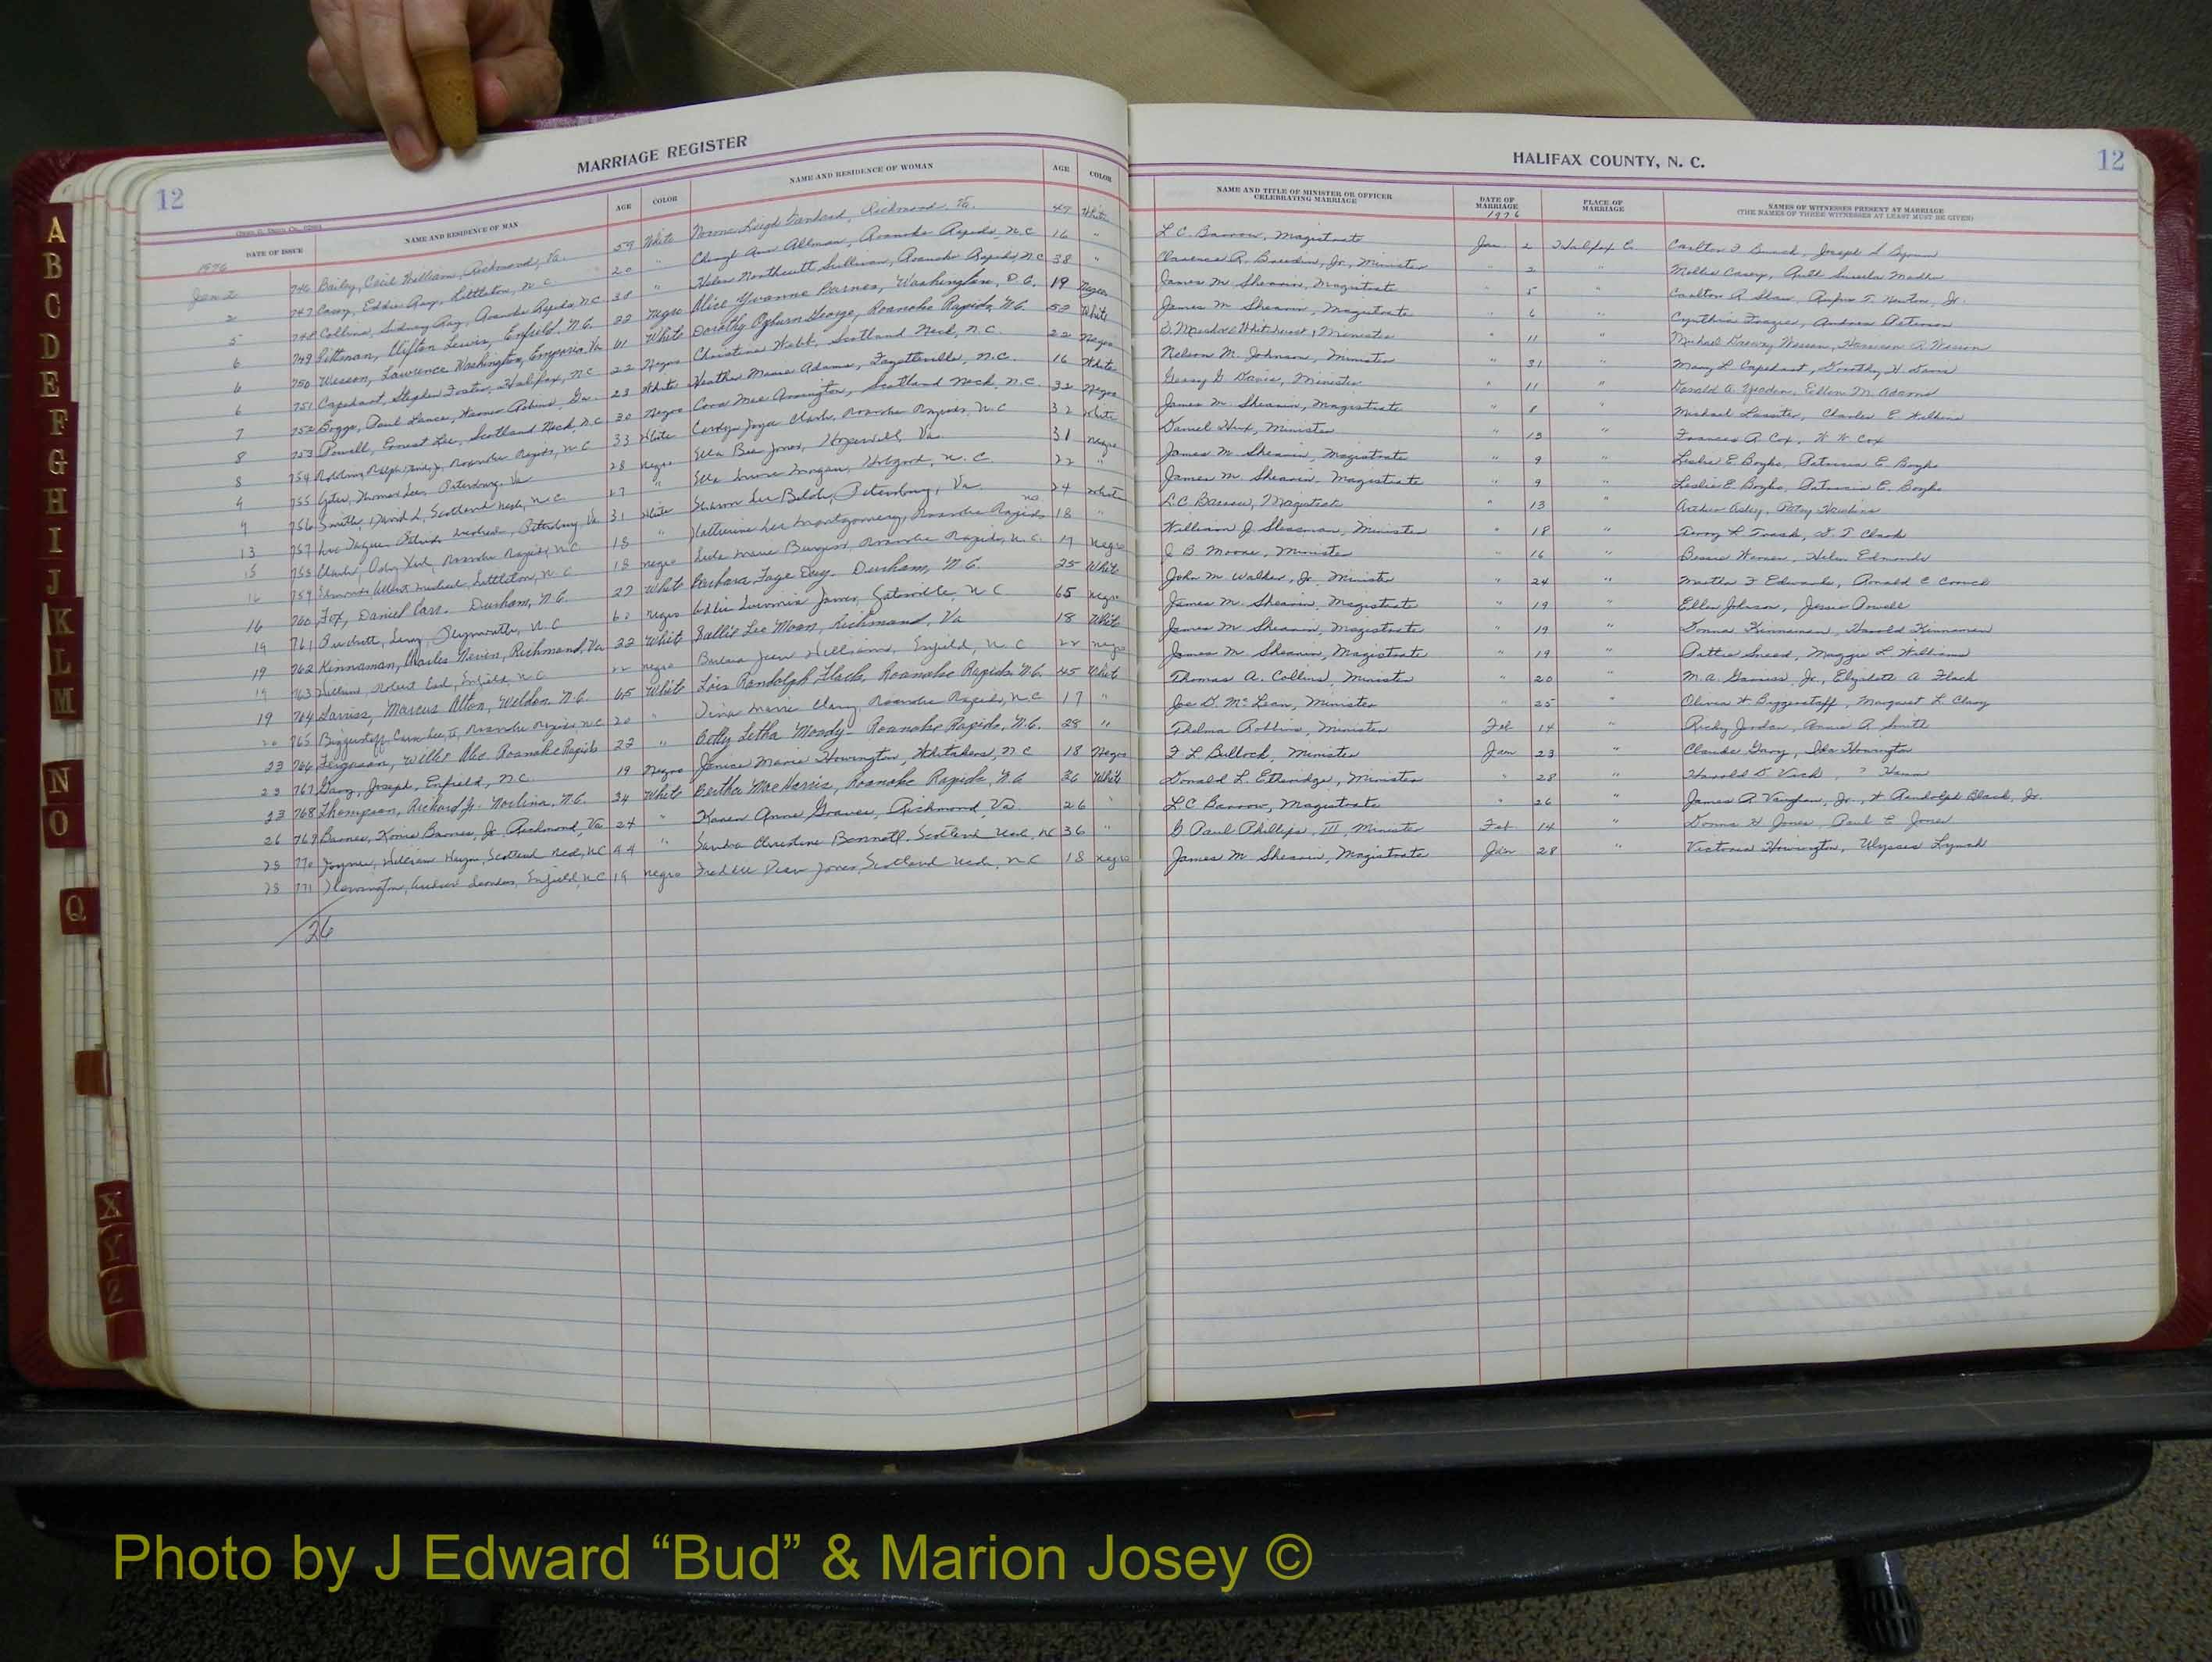 MARRIAGE REGISTER
12
DATE OF ISSUE NAME AND RESIDENCE OF MAN AGE COLOR NAME AND RESIDENCE OF WOMAN AGE COLOR
1976
Jan 2 746 Bailey, Cecil William, Richmond, Va. 59 White Leigh Richmond, Va. 47 White
2 747 Casey, Eddie Ray, Littleton, N.C. 20 " Cheryl Ann Allman, Roanoke Rapids, N.C 16 "
5 748 Collins, Sidney Ray, Roanoke Rapids, N.C. 38 " Helen Northcutt Sullivan, Roanoke Rapids, N.C 38 "
6 749 Pittman, Clifton Lewis, Enfield, N.C. 22 Negro Alice Yvonne Barnes, Washington, D.C. 19 Negro
6 750 Wesson, Lawrence Washington, Emporia, Va 61 White Dorothy Ogburn George, Roanoke Rapids, N.C. 52 White
6 751 Capehart, Stephen Foster, Halifax, N.C 22 Negro Christine Webb, Scotland Neck, N.C. 22 Negro
7 752 Boggs, Paul Lance, Warner Robins, Ga. 23 White Heather Marie Adams, Fayetteville, N.C. 16 White
8 753 Powell, Ernest Lee, Scotland Neck, N.C 30 Negro Cora Mae Arrington, Scotland Neck, N.C. 32 Negro
8 754 Ralph Roanoke Rapids, N.C 33 White Carolyn Joyce Clark, Roanoke Rapids, N.C 32 White
9 755 Thomas Lee, Petersburg, Va 28 Negro Ella Bee Jones, Hopewell, Va. 31 Negro
9 756 Smith, David L, Scotland Neck, N.C 27 " Morgan, Hobgood, N.C 22 "
13 757 Petersburg, Va 31 White Sharon Lee Petersburg, Va 24 White
15 758 Clark, Roanoke Rapids, N.C 18 " Katherine Lee Montgomery, Roanoke Rapids NC 18 "
16 759 Edmonds, Albert Littleton, N.C 18 Negro Marie Burgess Roanoke Rapids, N.C. 17 Negro
16 760 Fox, Daniel Carr. Durham, N.C. 27 White Barbara Faye Day. Durham, N.C. 25 White
19 761 Leroy, Plymouth, N.C 60 Negro Addie James, Gatesville, N.C 65 Negro
19 762 Kinnaman, Charles Neven, Richmond, Va 22 White Sallie Lee Moon, Richmond, Va 18 White
19 763 Williams, Robert Earl, Enfield, N.C 22 Negro Jean Williams, Enfield, N.C 22 Negro
19 764 Garriss, Marcus Alton, Weldon, N.C. 65 White Lois Randolph Flack, Roanoke Rapids, N.C. 45 White
20 765 Biggerstaff, Lee, II, Roanoke Rapids, N.C 20 " Tina Marie Clary, Roanoke Rapids, N.C 17 "
23 766 Ferguson, Willie Roanoke Rapids 27 " Betty Letha Moody - Roanoke Rapids, N.C. 28 "
23 767 Gary, Joseph, Enfield, N.C. 19 Negro Janice Marie Howington, Whitakers, N.C 18 Negro
23 768 Thompson, Richard Jr. Norlina, N.C. 34 White Bertha Mae Harris, Roanoke Rapids, N.C 36 White
26 769 Barnes, Barnes, Jr. Richmond, Va 24 " Karen Anne Graves, Richmond, Va 26 "
28 770 Joyner, William Wayne, Scotland Neck, NC 44 " Sandra Christine Bennett, Scotland Neck, NC 36 "
28 771 Andrew Enfield, NC 19 Negro Jones, Scotland Neck, N.C 18 Negro
26
HALIFAX COUNTY, N. C.
12
NAME AND TITLE OF MINISTER OR OFFICER CELEBRATING MARRIAGE DATE OF MARRIAGE PLACE OF MARRIAGE NAMES OF WITNESSES PRESENT AT MARRIAGE
(THE NAMES OF THREE WITNESSES AT LEAST MUST BE GIVEN)
1976
L.C. Barrow, Magistrate Jan. 2 Halifax Co. Carlton F Bunch, Joseph S Byrum
Clarence R. Breedin, Jr., Minister " 2 " Mollie Casey,
James M. Shearin, Magistrate " 5 " Carlton R Shaw, Rufus T. Newton, Jr.
James M. Shearin, Magistrate " 6 " Cynthia Frazier, Andrea Peterson
D. Minister " 11 " Michael Wesson, Harrison A Wesson
Nelson M. Johnson, Minister " 31 " Mary L Capehart, Dorothy H Davis
G Davis, Minister " 11 " Donald A. Ellen M. Adams
James M. Shearin, Magistrate " 8 " Michael Lassiter, Charles E Wilkins
Daniel Hux, Minister " 13 " Frances A Cox, W W Cox
James M. Shearin, Magistrate " 9 " Leslie E Boyks, Patricia E. Boyks
James M. Shearin, Magistrate " 9 " Leslie E. Boyks, Patricia E. Boyks
L.C Barrow, Magistrate " 13 " Arthur Patsy Hawkins
William J. Minister " 18 " Terry L Clark
J B. Moore, Minister " 16 " Bessie Helen Edmonds
John M. Walker, Jr Minister " 24 " Martha F Edwards, Ronald C Couch
James M. Shearin, Magistrate " 19 " Ellen Johnson, Jessie Powell
James M. Shearin, Magistrate " 19 " Donna Kinnaman, Harold Kinnaman
James M. Shearin, Magistrate " 19 " Pattie Sneed, Maggie L Williams
Thomas A. Collins, Minister " 20 " M.A. Garriss, Jr, Elizabeth A Flack
Joe D. McLean, Minister " 25 " Oliver H Biggerstaff, Margaret L Clary
Thelma Robbins, Minister Feb 14 " Ricky Jordan, Annie R Smith
F L Bullock, Minister Jan 23 " Claude Gary, Ida Howington
Donald L Etheridge, Minister " 28 " Harold D Vick,
L C Barrow, Magistrate " 26 " James A Vaughan, Jr., H Randolph Black, Jr.
G Paul Phillips, III, Minister Feb 14 " Donna W Jones, Paul E Jones
James M Shearin, Magistrate Jan 28 " Victoria Howington, Ulysses Lynch
A
B
C
D
E
F
G
H
I
J
K
L
M
N
O
Q
X
Y
Z
Photo by J Edward “Bud” & Marion Josey ©